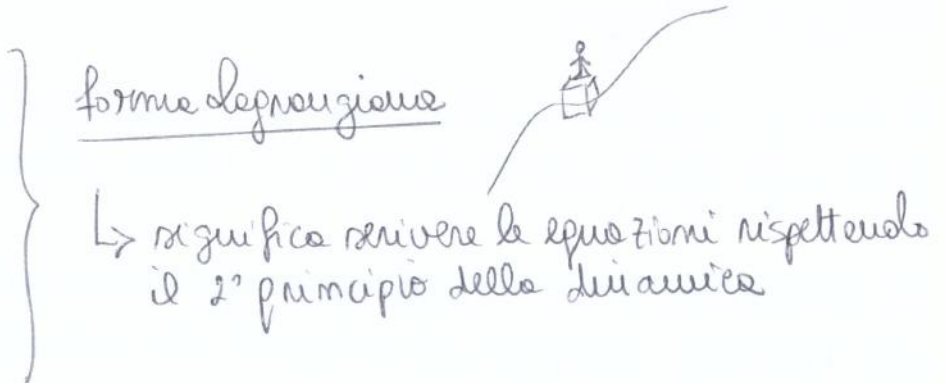 forma Lagrangiana
↳ significa scrivere le equazioni rispettando
il 2° principio della dinamica